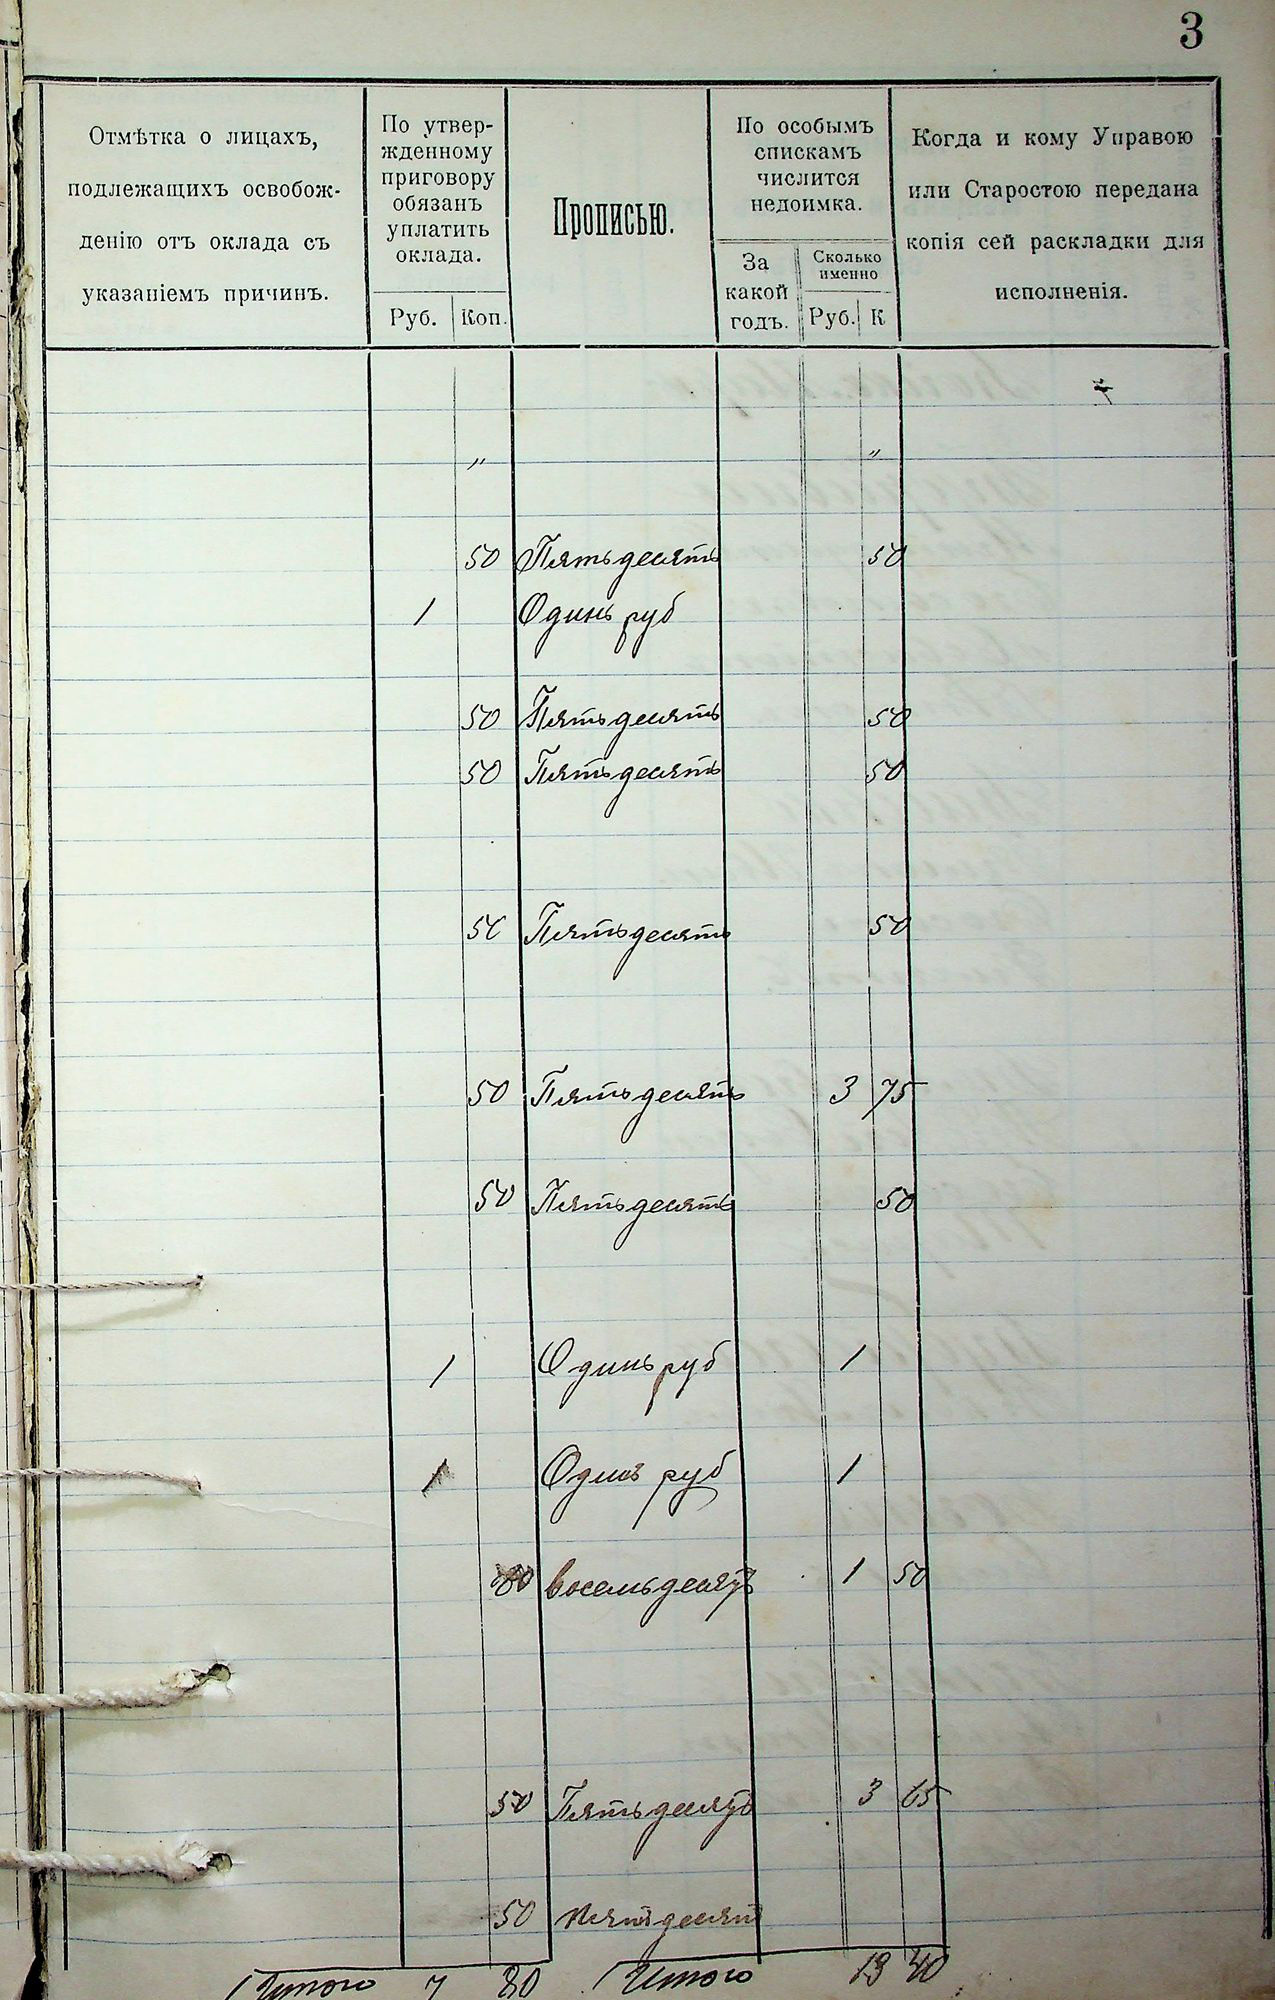 3
Отмѣтка о лицахъ,
подлежащихъ освобож-
денію отъ оклада съ
указаніемъ причинъ.
По утвер-
жденному
приговору
обязанъ
уплатить
оклада.
Руб. Коп.
Прописью.
По особымъ
спискамъ
числится
недоимка.
За
какой
годъ.
Сколько
именно
Руб. К
Когда и кому Управою
или Старостою передана
копія сей раскладки для
исполненія.
" "
50 Пятьдесятъ 50
1 Одинъ руб
50 Пятьдесятъ 50
50 Пятьдесятъ 50
50 Пятьдесятъ 50
50 Пятьдесятъ 3 75
50 Пятьдесятъ 50
1 Одинъ руб 1
1 Одинъ руб 1
80 восемьдесятъ 1 50
50 Пятьдесятъ 3 65
50 пятьдесят
Итого 7 80 Итого 13 40